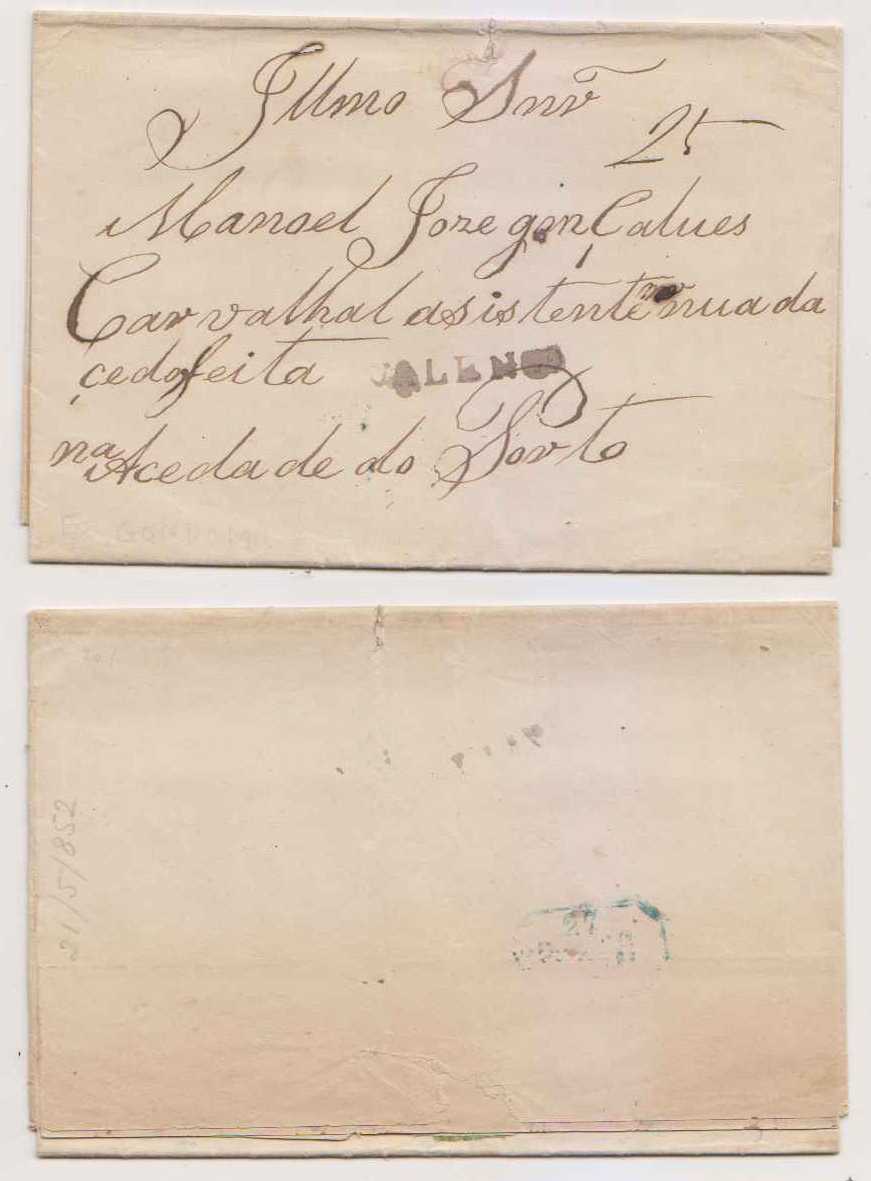 Illmo Snr
25
Manoel Joze gonçalues
Carvalhal asistente na rua da
cedofeita
VALENÇA
na Acedade do Porto
E. GONDOMIL
20/
21/5/852
27